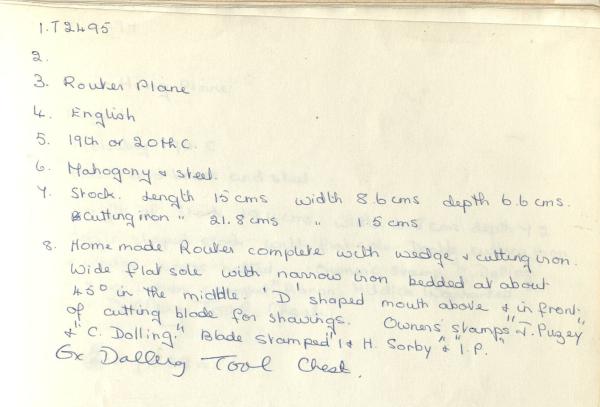 1. T2495
2.
3. Router Plane
4. English
5. 19th or 20th C.
6. Mahogony & steel.
7. Stock. Length 15 cms width 8.6 cms depth 6.6 cms.
cutting iron " 21.8 cms " 1.5 cms
8. Home made Router complete with wedge & cutting iron.
Wide flat sole with narrow iron bedded at about
45° in the middle. 'D shaped mouth above & in front
of cutting blade for shavings. Owners' stamps "J. Pugey"
& "C. Dolling." Blade stamped "I & H. Sorby" & "I.P."
Ex Dalling Tool Chest.